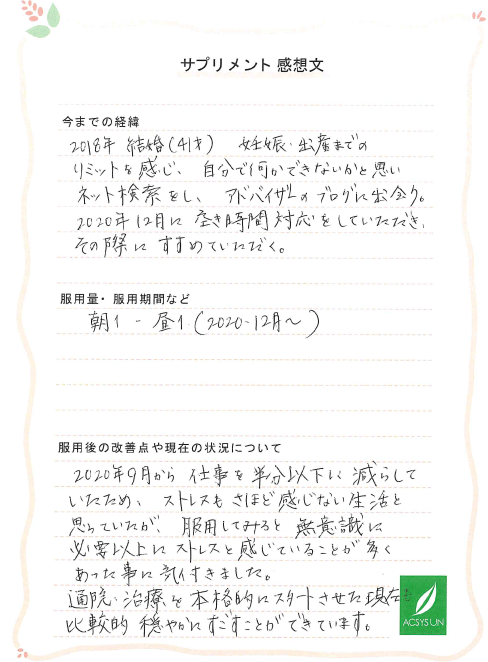 サプリメント 感想文
今までの経緯
2018年 結婚(41才) 妊娠・出産までの
リミットを感じ、自分で何かできないかと思い
ネット検索をし、アドバイザーのブログに出会う。
2020年12月に 空き時間対応をしていただき、
その際に すすめていただく。
服用量・服用期間など
朝1 - 昼1 (2020-12月〜)
服用後の改善点や現在の状況について
2020年9月から 仕事を半分以下に 減らして
いたため、ストレスも さほど感じない生活と
思っていたが、服用してみると 無意識に
必要以上に ストレスと感じていることが多く
あった事に気付きました。
通院・治療を本格的にスタートさせた現在も
比較的 穏やかに すごすことができています。
ACSYSUN